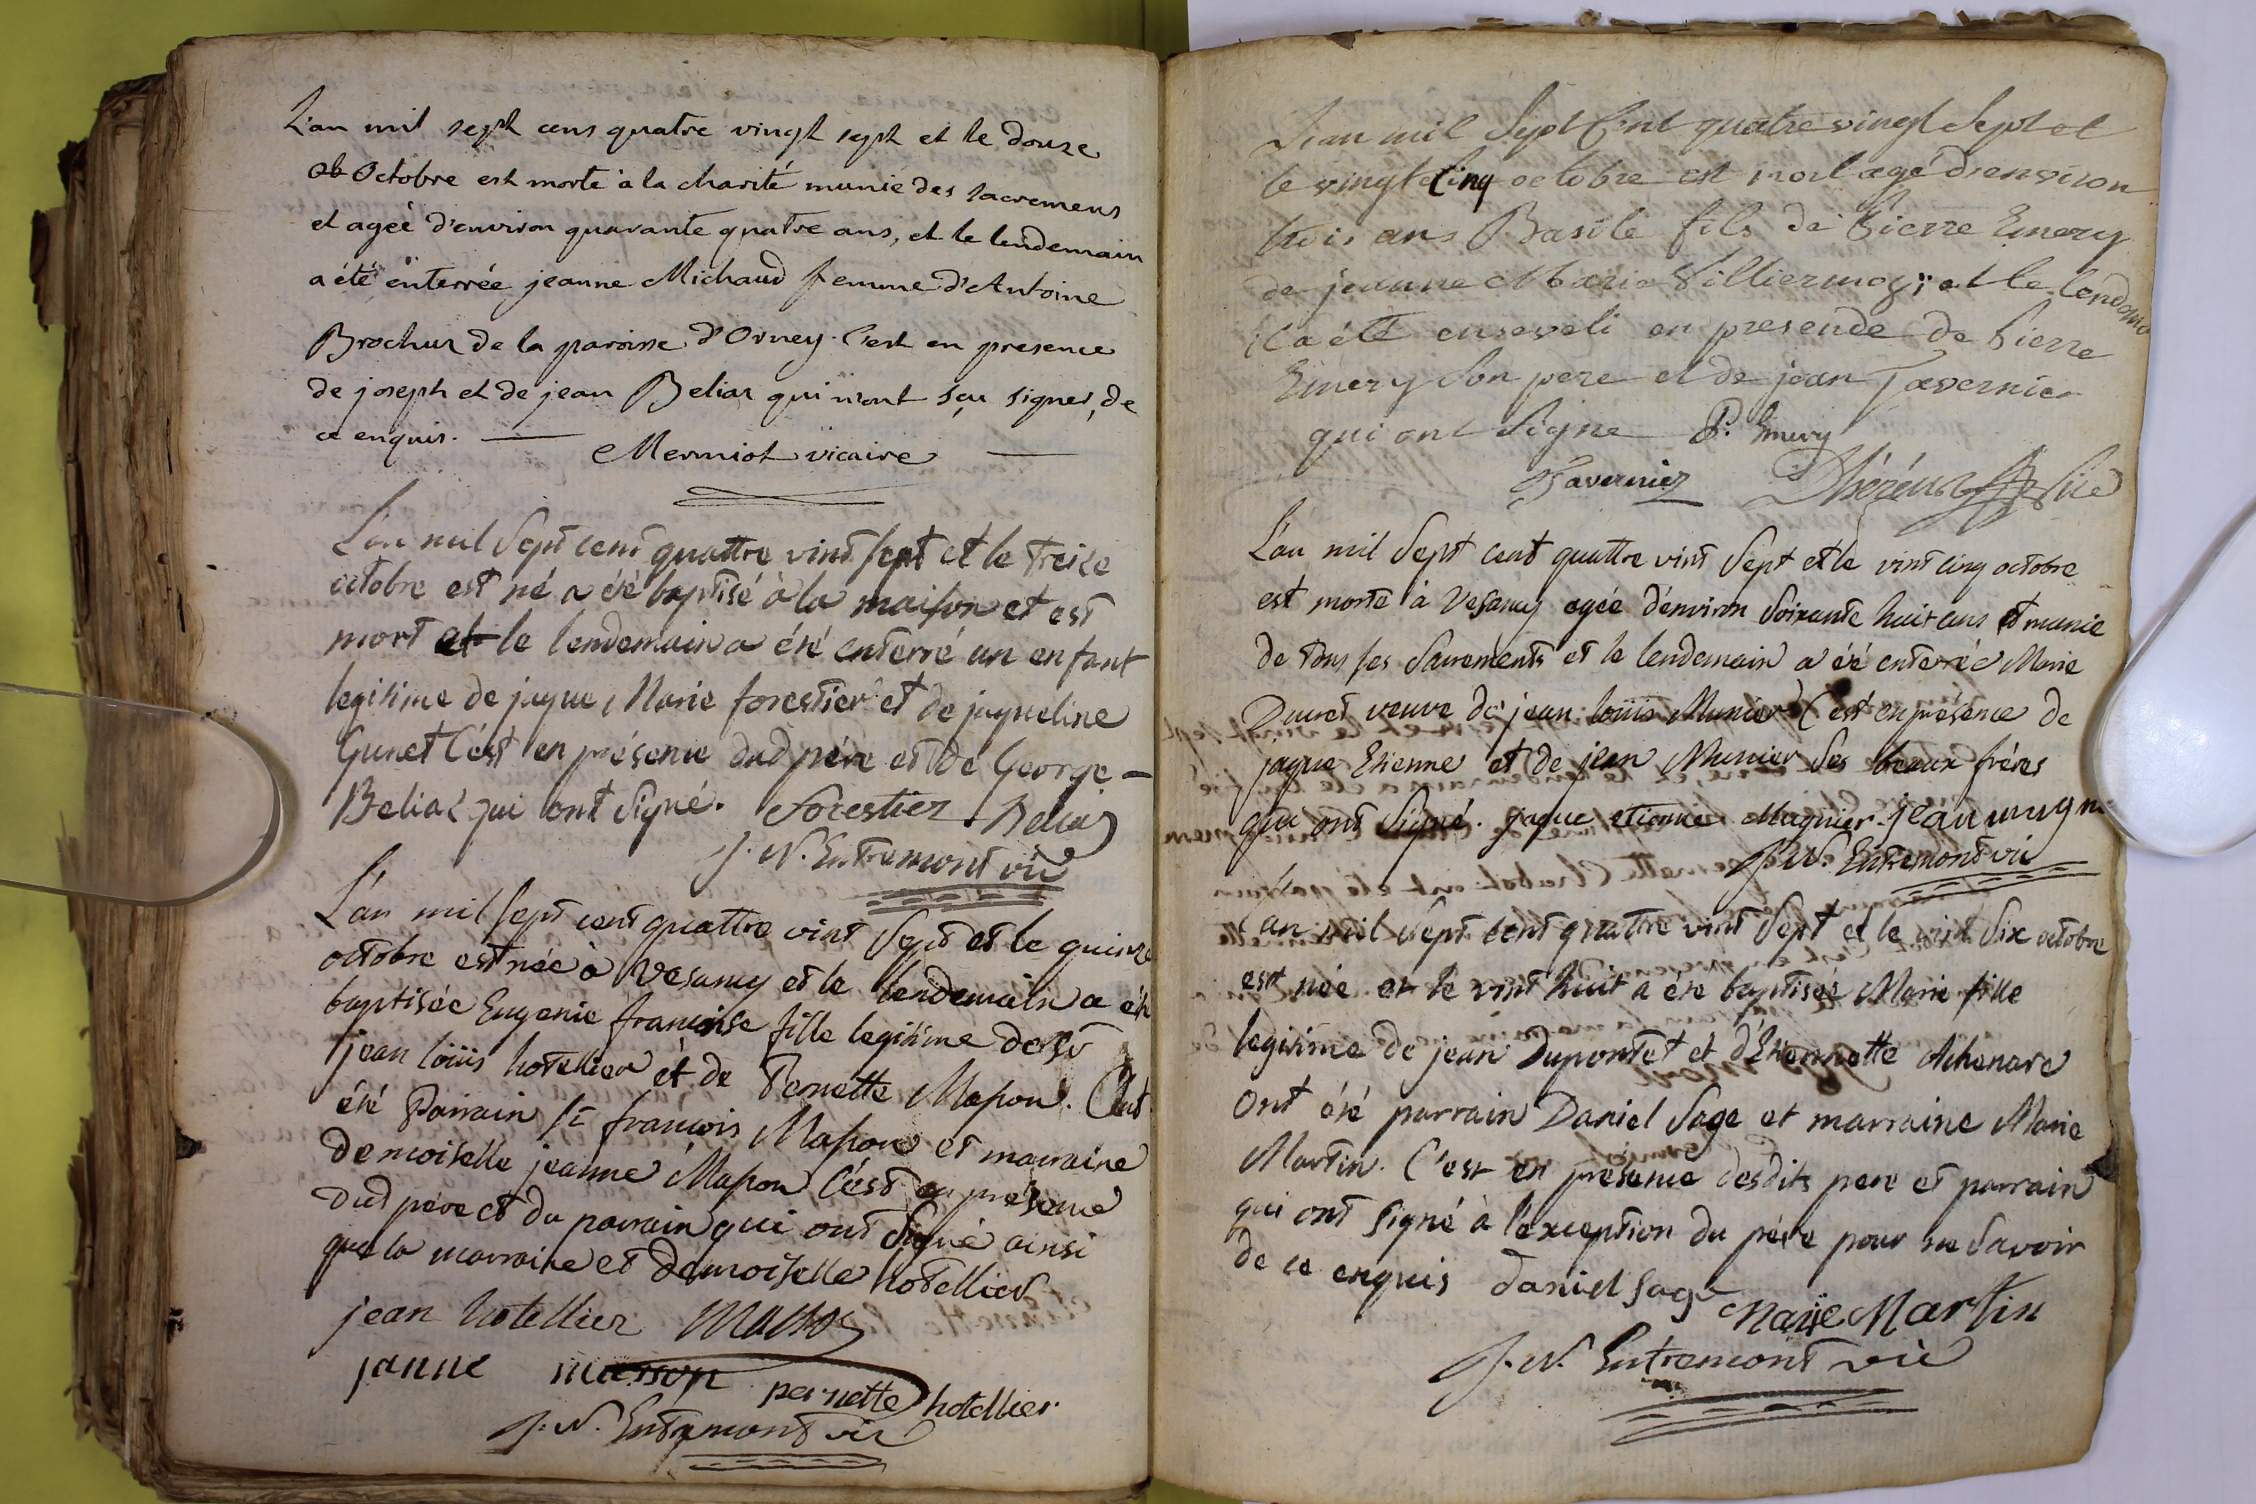 L'an mil sept cens quatre vingt sept et le douze
Octobre est morte à la charité munie des sacremens
et agée d'environ quarante quatre ans, et le lendemain
a été enterrée jeanne Michaud femme d'Antoine
Brochuz de la paroisse d'Orney. C'est en presence
de joseph et de jean Beliaz qui n'ont sçu signer, de
ce enquis.
Mermiot vicaire
L'an mil Sept cent quattre vint sept et le treize
octobre est né a été baptisé à la maison et est
mort et le lendemain a été enterré un enfant
legitime de jaque Marie forestier et de jaqueline
Gunet C'ést en présence dud pére et de George
Beliaz qui ont signé. Forestier Beliaz
J. N. Entremont vic
L'an mil sept cent quattre vint Sept et le quinze
octobre est née à Vesancy et le lendemain a été
baptisée Eugenie francoise fille legitime de sr
jean loüis hotellier et de Pernette Masson. Ont
été Parrain sr francois Masson et marraine
Demoiselle jeanne Masson C'ést en présence
Dud pére et du parrain qui ont Signé ainsi
que la marraine et Demoiselle hotellier
jean hotellier Masson
janne masson pernette hotellier
J. N. Entremont vic
L'an mil Sept Cent quatre vingt Sept et
le vingt Cinq octobre est mort agé d'environ
trois ans Basile fils de Pierre Emery
de jeanne Marie Villiermoz; et le lendemain
il a été enseveli en presence de Pierre
Emery Son pere et de jean Tavernier
qui ont Signe P. Emery
Tavernier
L'an mil Sept cent quattre vint Sept et le vint cinq octobre
est morte à Vesancy agée d'environ Soixante huit ans et munie
de tous ses Sacrements et le lendemain a été enterrée Marie
Duret veuve de jean loüis Munier C'est en présence de
jaque Etienne et de jean Munier Ses beaux fréres
qui ont Signé. jaque etienne Mugnier jean mugn
J. N. Entremont vic
L'an mil Sept cent quattre vint Sept et le vint Six octobre
est née et le vint huit a été baptisée Marie fille
legitime de jean Dupontet et d'Etiennette Athenare
Ont été parrain Daniel Sage et marraine Marie
Martin. C'est en présence desdits pere et parrain
qui ont signé à l'exception du pére pour ne Savoir
de ce enquis daniel sage Marie Martin
J. N. Entremont vic